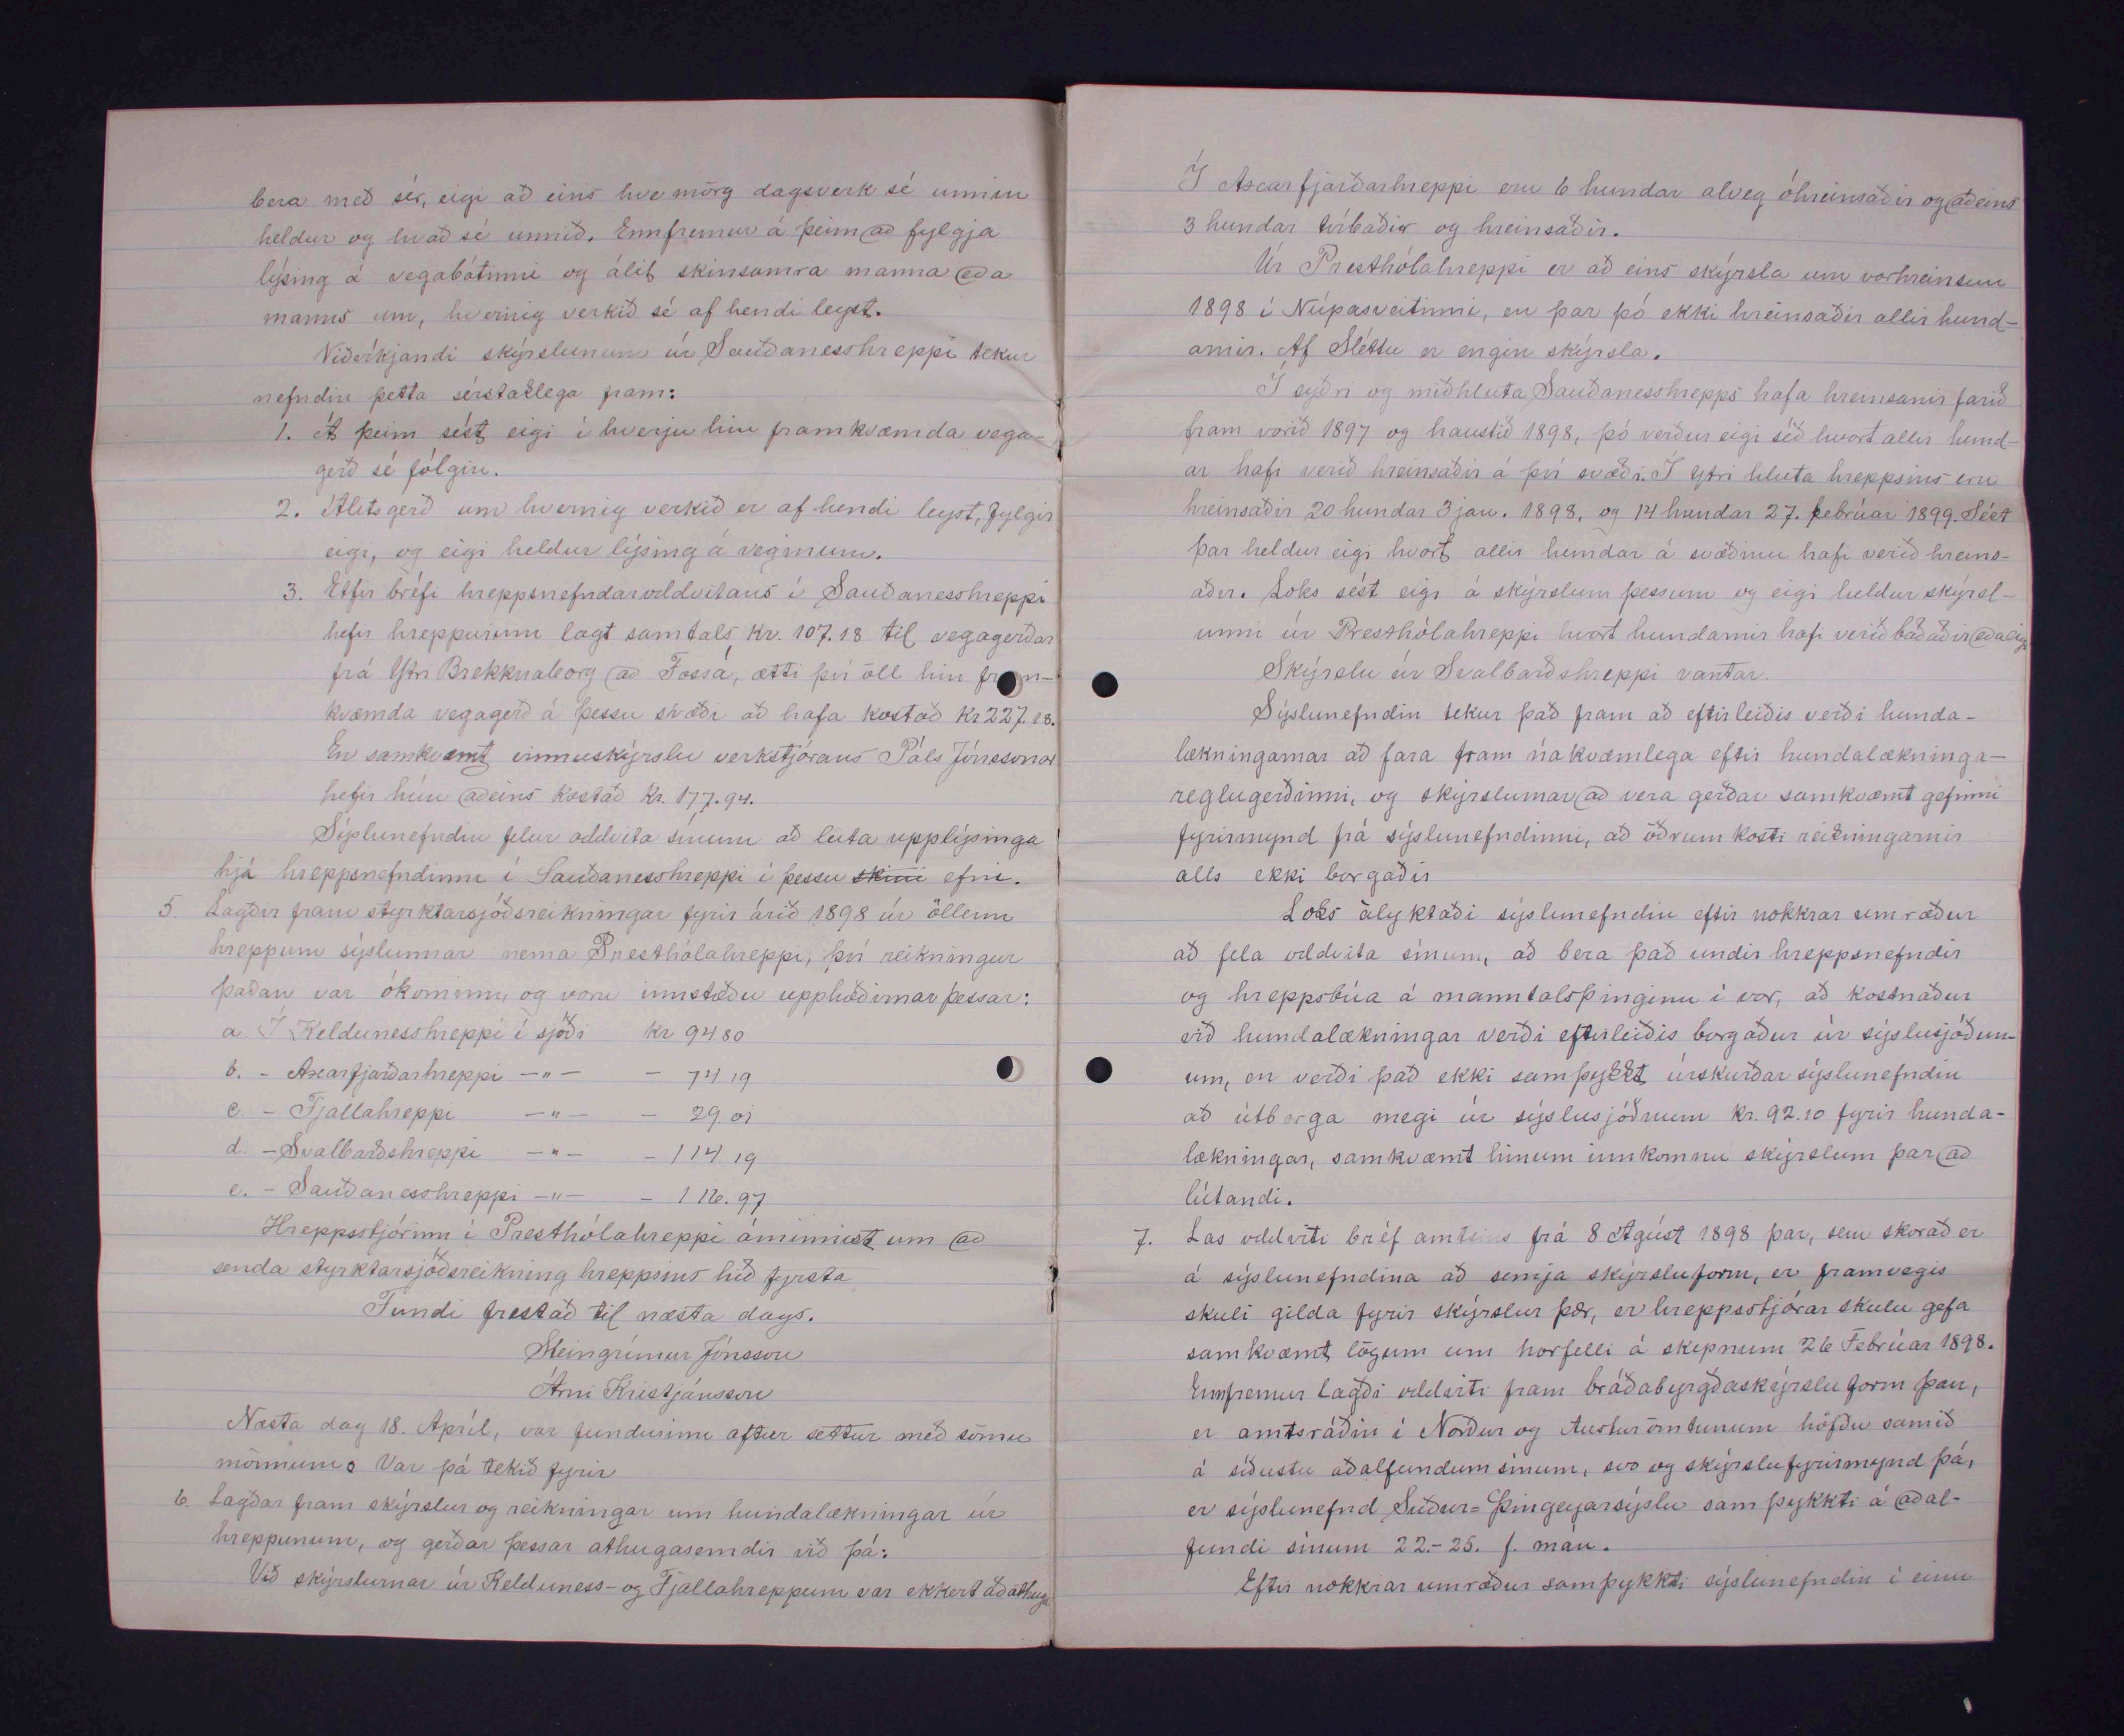 bera með sér, eigi að eins hve mörg dagsverk sé unnin
heldur og hvað sé unnið. Ennfremur á þeim að fylgja
lýsing á vegabótinni og álit skinsamra manna eða
manns um, hvernig verkið sé af hendi leyst.
Viðvíkjandi skýrslunum úr Sauðanesshreppi tekur
nefndin þetta sérstaklega fram:
1. Á þeim sést eigi í hverju hin framkvæmda vega-
gerð sé fólgin.
2. Álitsgerð um hvernig verkið er af hendi leyst, fylgir
eigi, og eigi heldur lýsing á veginum.
3. Eftir bréfi hreppsnefndaroddvitans í Sauðanesshreppi
hefir hreppurinn lagt samtals kr. 107.18 til vegagerðar
frá Ytri Brekknaborg að Fossá, ætti því öll hin fram-
kvæmda vegagerð á þessu svæði að hafa kostað kr 227.18.
En samkvæmt vinnuskýrslu verkstjórans Páls Jónssonar
hefir hún aðeins kostað kr. 177.94.
Sýslunefndin felur oddvita sínum að leita upplýsinga
hjá hreppsnefndinni í Sauðanesshreppi í þessu efni.
5. Lagðir fram styrktarsjóðsreikningar fyrir árið 1898 úr öllum
hreppum sýslunnar nema Presthólahreppi, því reikningur
þaðan var ókominn, og voru innstæðu upphæðirnar þessar:
a. Í Keldunesshreppi í sjóði kr 94 80
b. - Axarfjarðarhreppi -"- - 74.19
c. - Fjallahreppi -"- - 29.01
d. - Svalbarðshreppi -"- - 114.19
e. - Sauðanesshreppi -"- - 116.97
Hreppsstjórinn í Presthólahreppi áminnist um að
senda styrktarsjóðsreikning hreppsins hið fyrsta
Fundi frestað til næsta dags.
Steingrímur Jónsson
Árni Kristjánsson
Næsta dag 18. Apríl, var fundurinn aftur settur með sömu
mönnum. Var þá tekið fyrir
6. Lagðar fram skýrslur og reikningar um hundalækningar úr
hreppunum, og gerðar þessar athugasemdir við þá:
Við skýrslurnar úr Kelduness- og Fjallahreppum var ekkert að athuga
Í Axarfjarðarhreppi eru 6 hundar alveg óhreinsaðir og aðeins
3 hundar tvíbaðir og hreinsaðir.
Úr Presthólahreppi er að eins skýrsla um vorhreinsun
1898 í Núpasveitinni, en þar þó ekki hreinsaðir allir hund-
arnir. Af Sléttu er engin skýrsla.
Í syðri og miðhluta Sauðanesshrepps hafa hreinsanir farið
fram vorið 1897 og haustið 1898, þó verður eigi séð hvort allir hund-
ar hafi verið hreinsaðir á því svæði. Í ytri hluta hreppsins eru
hreinsaðir 20 hundar 3 jan. 1898, og 14 hundar 27. febrúar 1899. Sést
þar heldur eigi hvort allir hundar á svæðinu hafi verið hreins-
aðir. Loks sést eigi á skýrslum þessum og eigi heldur skýrsl-
unni úr Presthólahreppi hvort hundarnir hafi verið baðaðir eða eigi
Skýrslu úr Svalbarðshreppi vantar.
Sýslunefndin tekur það fram að eftirleiðis verði hunda-
lækningarnar að fara fram nákvæmlega eftir hundalækninga-
reglugerðinni, og skýrslurnar að vera gerðar samkvæmt gefinni
fyrirmynd frá sýslunefndinni, að öðrum kosti reikningarnir
alls ekki borgaðir
Loks ályktaði sýslunefndin eftir nokkrar umræður
að fela oddvita sínum, að bera það undir hreppsnefndir
og hreppsbúa á manntalsþinginu í vor, að kostnaður
við hundalækningar verði eftirleiðis borgaður úr sýslusjóðun-
um, en verði það ekki samþykkt úrskurðar sýslunefndin
að útborga megi úr sýslusjóðnum kr. 92.10 fyrir hunda-
lækningar, samkvæmt hinum innkomnu skýrslum þar að
lútandi.
7. Las oddviti bréf amtsins frá 8 Ágúst 1898 þar, sem skorað er
á sýslunefndina að semja skýrsluform, er framvegis
skuli gilda fyrir skýrslur þær, er hreppsstjórar skulu gefa
samkvæmt lögum um horfelli á skepnum 26 Febrúar 1898.
Ennfremur lagði oddviti fram bráðabyrgðaskýrslu form þau,
er amtsráðin í Norður og Austurömtunum höfðu samið
á síðustu aðalfundum sínum, svo og skýrslufyrirmynd þá,
er sýslunefnd Suður=Þingeyarsýslu samþykkti á aðal-
fundi sínum 22.-25. f. mán.
Eftir nokkrar umræður samþykkti sýslunefndin í einu